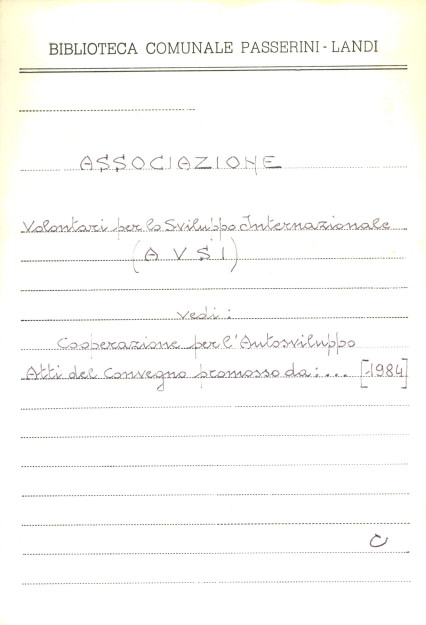 BIBLIOTECA COMUNALE PASSERINI - LANDI
ASSOCIAZIONE
Volontari per lo Sviluppo Internazionale
(AVSI)
Vedi:
Cooperazione per l'Autosviluppo
Atti del Convegno promosso da: ... [1984]
C